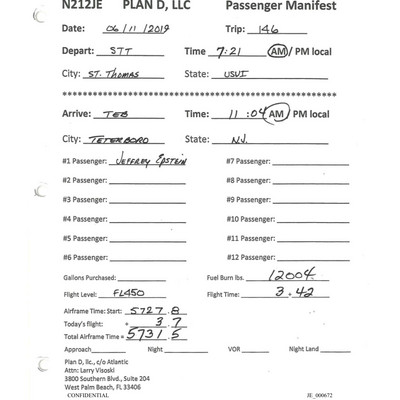 N212JE PLAN D, LLC Passenger Manifest
Date: 06/11/2019 Trip: 146
Depart: STT Time 7:21 AM/PM local
City: ST. THOMAS State: USVI
Arrive: TEB Time: 11:04 AM/PM local
City: TETERBORO State: NJ.
#1 Passenger: JEFFREY EPSTEIN #7 Passenger:
#2 Passenger: #8 Passenger:
#3 Passenger: #9 Passenger:
#4 Passenger: #10 Passenger:
#5 Passenger: #11 Passenger:
#6 Passenger: #12 Passenger:
Gallons Purchased: Fuel Burn lbs. 12004
Flight Level: FL450 Flight Time: 3.42
Airframe Time: Start: 5727.8
Today's flight: + 3.7
Total Airframe Time = 5731.5
Approach Night VOR Night Land
Plan D, llc., c/o Atlantic
Attn: Larry Visoski
3800 Southern Blvd., Suite 204
West Palm Beach, FL 33406
CONFIDENTIAL JE_000672